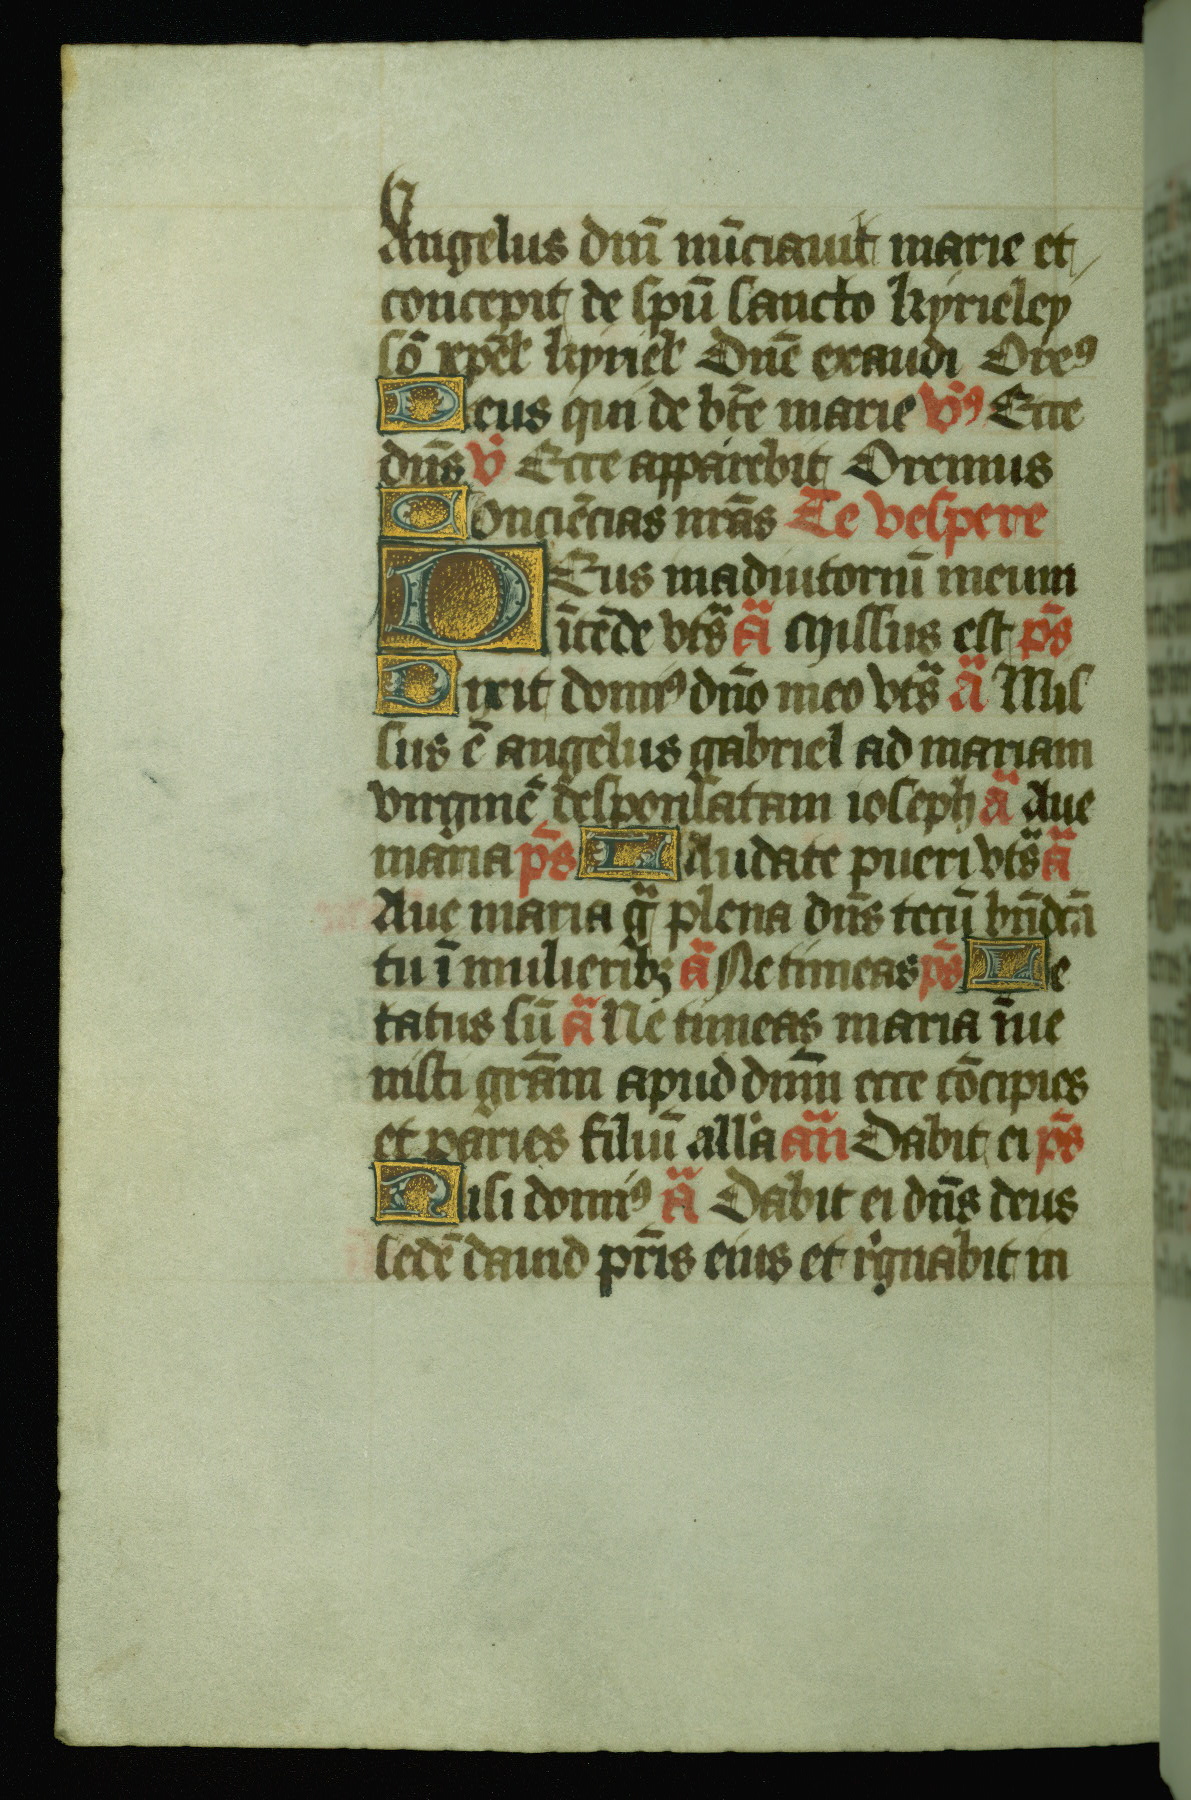 Angelus dnī nūciauit marie et
concepit de spū sancto kyrieley
sō xpēl kyriel Dnē exaudi Oreꝰ
Deus qui de btē marie vꝰ Ecce
dn̄s v̄ Ecce apparebit Oremus
Conciēcias nrās Te vespere
DEus in adiutoriū meum
ītēde vts̄ ā Missus est ps̄
Dixit domīꝰ dn̄o meo vts̄ ā Mis
sus ē angelus gabriel ad mariam
virginē desponsatam ioseph ā Aue
maria ps̄ LAudate pueri vts̄ ā
Aue maria grā plena dn̄s tecū bn̄dcā
tu ī mulieribꝫ ā Ne timeas ps̄ Le
tatus sū ā Ne timeas maria īue
nisti grām apud dnm̄ ecce cōcipies
et paries filiū all'a an̄ Dabit ei ps̄
Nisi domīꝰ ā Dabit ei dn̄s deus
sedē dauid pr̄is eius et rֿgnabit in